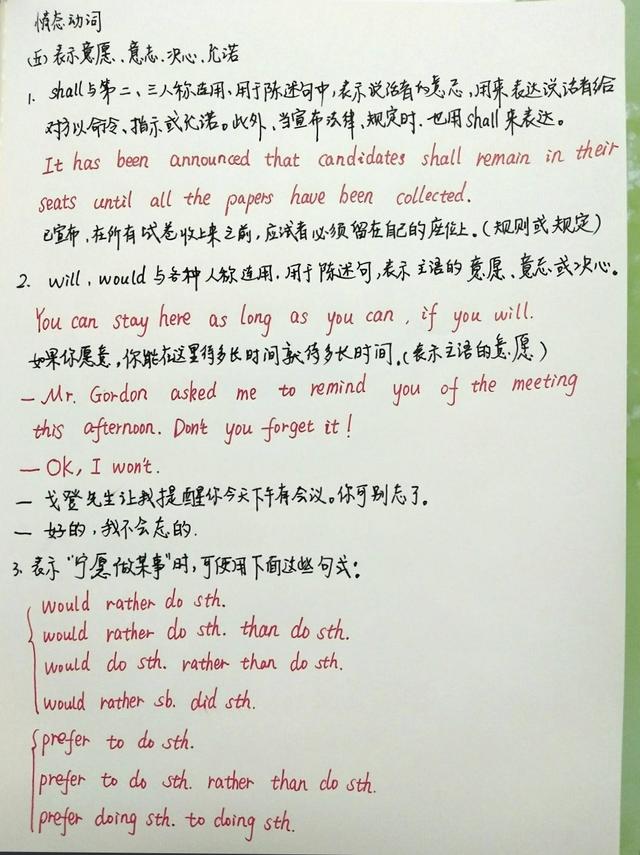 情态动词
(五) 表示意愿、意志、决心、允诺
1. shall与第二、三人称连用,用于陈述句中,表示说话者的意志,用来表达说话者给
对方以命令、指示或允诺。此外、当宣布法律、规定时、也用shall来表达。
It has been announced that candidates shall remain in their
seats until all the papers have been collected.
已宣布,在所有试卷收上来之前,应试者必须留在自己的座位上。(规则或规定)
2. will, would与各种人称连用,用于陈述句,表示主语的意愿、意志或决心。
You can stay here as long as you can, if you will.
如果你愿意,你能在这里待多长时间就待多长时间。(表示主语的意愿)
— Mr. Gordon asked me to remind you of the meeting
this afternoon. Don't you forget it!
— OK, I won't.
— 戈登先生让我提醒你今天下午有会议。你可别忘了。
— 好的,我不会忘的.
3. 表示"宁愿做某事"时,可使用下面这些句式:
would rather do sth.
would rather do sth. than do sth.
would do sth. rather than do sth.
would rather sb. did sth.
prefer to do sth.
prefer to do sth. rather than do sth.
prefer doing sth. to doing sth.